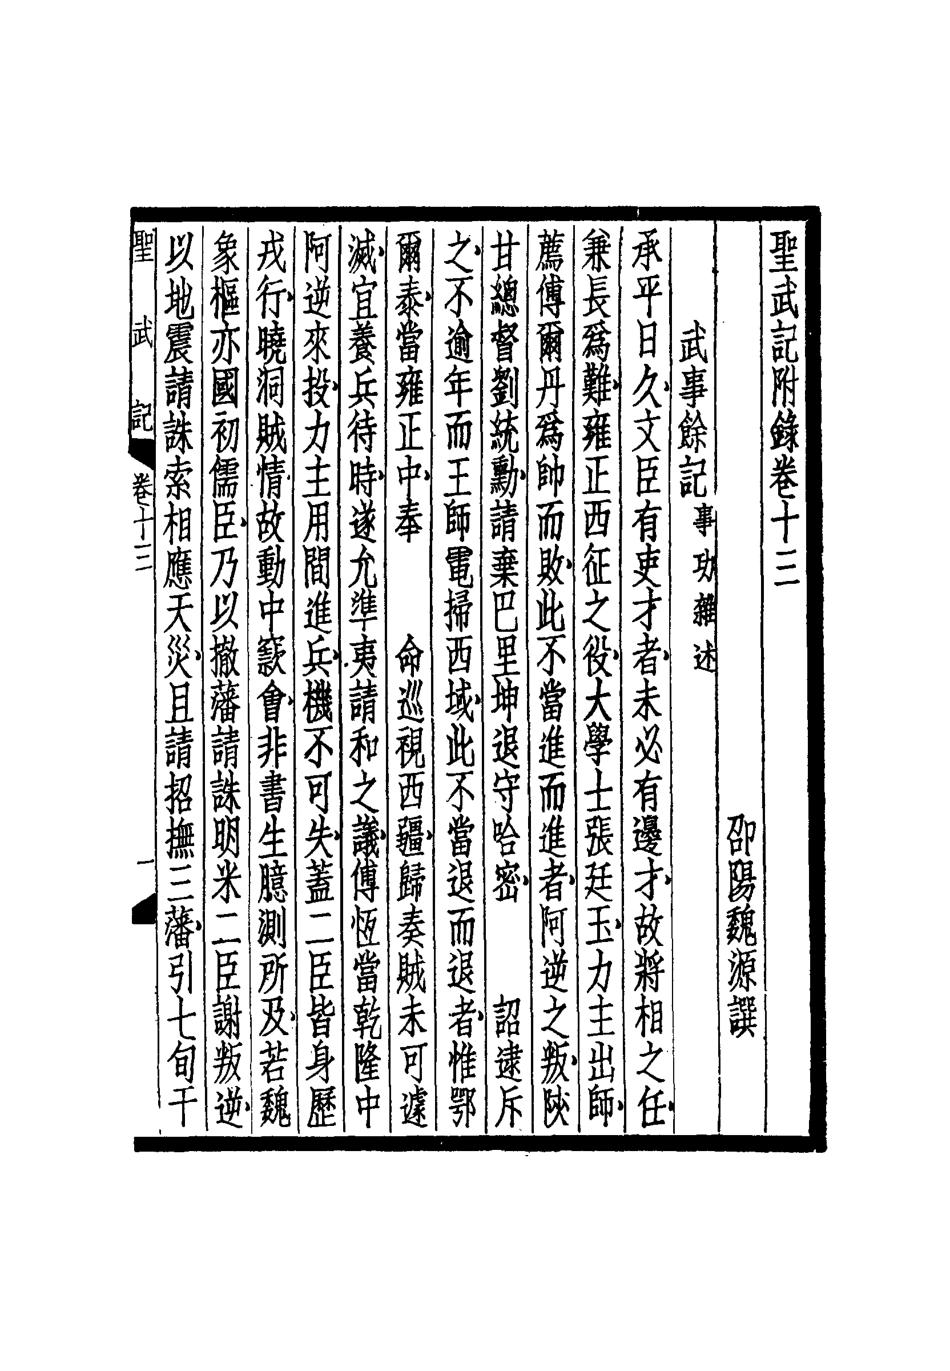 聖武記附錄卷十三
邵陽魏源譔
武事餘記事功雜述
承平日久文臣有吏才者未必有邊才故將相之任
兼長爲難雍正西征之役大學士張廷玉力主出師
薦傅爾丹爲帥而敗此不當進而進者阿逆之叛陝
甘總督劉統勳請棄巴里坤退守哈密 詔逮斥
之不逾年而王師電掃西域此不當退而退者惟鄂
爾泰當雍正中奉 命巡視西疆歸奏賊未可遽
滅宜養兵待時遂允準夷請和之議傅恆當乾隆中
阿逆來投力主用間進兵機不可失蓋二臣皆身歷
戎行曉洞賊情故動中窾會非書生臆測所及若魏
象樞亦國初儒臣乃以撤藩請誅明米二臣謝叛逆
以地震請誅索相應天災且請招撫三藩引七旬干
聖武記 卷十三 一